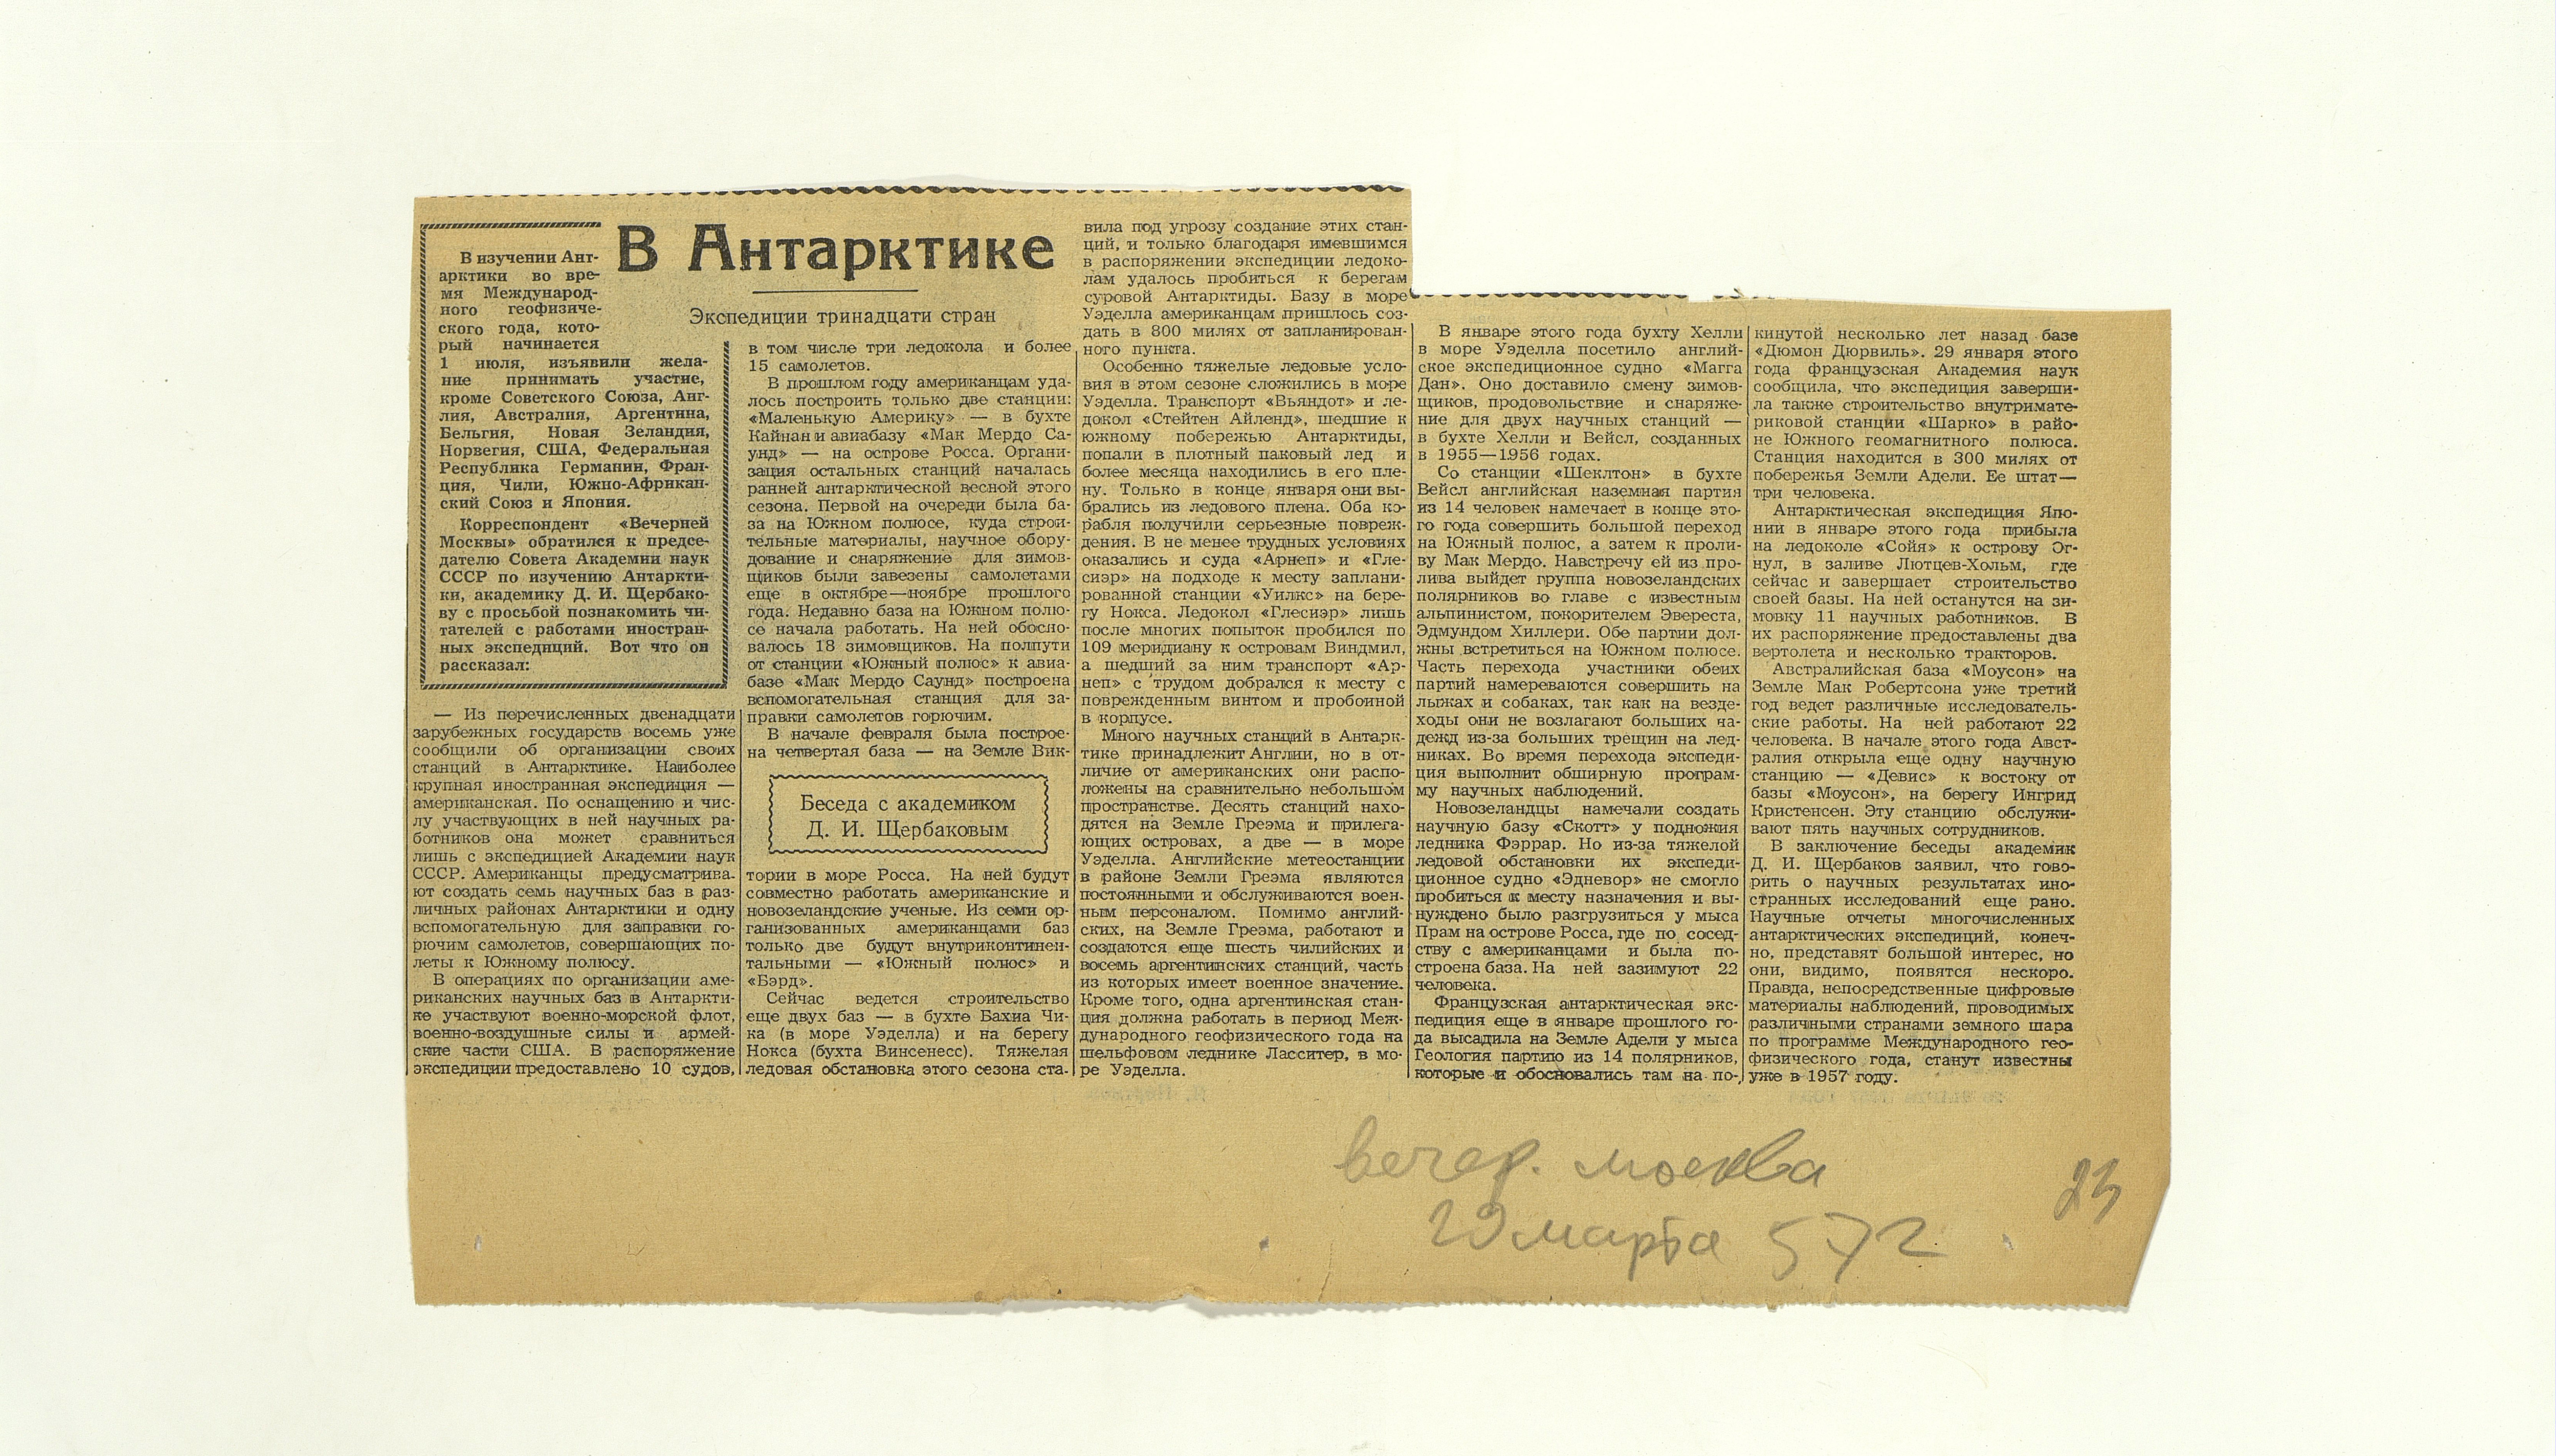 В Антарктике
Экспедиции тринадцати стран
В изучении Ант-
арктики во вре-
мя Международ-
ного геофизиче-
ского года, кото-
рый начинается
1 июля, изъявили жела-
ние принимать участие,
кроме Советского Союза, Анг-
лия, Австралия, Аргентина,
Бельгия, Новая Зеландия,
Норвегия, США, Федеральная
Республика Германии, Фран-
ция, Чили, Южно-Африкан-
ский Союз и Япония.
Корреспондент «Вечерней
Москвы» обратился к предсе-
дателю Совета Академии наук
СССР по изучению Антаркти-
ки, академику Д. И. Щербако-
ву с просьбой познакомить чи-
тателей с работами иностран-
ных экспедиций. Вот что он
рассказал:
— Из перечисленных двенадцати
зарубежных государств восемь уже
сообщили об организации своих
станций в Антарктике. Наиболее
крупная иностранная экспедиция —
американская. По оснащению и чис-
лу участвующих в ней научных ра-
ботников она может сравниться
лишь с экспедицией Академии наук
СССР. Американцы предусматрива-
ют создать семь научных баз в раз-
личных районах Антарктики и одну
вспомогательную для заправки го-
рючим самолетов, совершающих по-
леты к Южному полюсу.
В операциях по организации аме-
риканских научных баз в Антаркти-
ке участвуют военно-морской флот,
военно-воздушные силы и армей-
ские части США. В распоряжение
экспедиции предоставлено 10 судов,
в том числе три ледокола и более
15 самолетов.
В прошлом году американцам уда-
лось построить только две станции:
«Маленькую Америку» — в бухте
Кайнан и авиабазу «Мак Мердо Са-
унд» — на острове Росса. Органи-
зация остальных станций началась
ранней антарктической весной этого
сезона. Первой на очереди была ба-
за на Южном полюсе, куда строи-
тельные материалы, научное обору-
дование и снаряжение для зимов-
щиков были завезены самолетами
еще в октябре—ноябре прошлого
года. Недавно база на Южном полю-
се начала работать. На ней обосно-
валось 18 зимовщиков. На полпути
от станции «Южный полюс» к авиа-
базе «Мак Мердо Саунд» построена
вспомогательная станция для за-
правки самолетов горючим.
В начале февраля была построе-
на четвертая база — на Земле Вик-
Беседа с академиком
Д. И. Щербаковым
тории в море Росса. На ней будут
совместно работать американские и
новозеландские ученые. Из семи ор-
ганизованных американцами баз
только две будут внутриконтинен-
тальными — «Южный полюс» и
«Бэрд».
Сейчас ведется строительство
еще двух баз — в бухте Бахиа Чи-
ка (в море Уэделла) и на берегу
Нокса (бухта Винсенесс). Тяжелая
ледовая обстановка этого сезона ста-
вила под угрозу создание этих стан-
ций, и только благодаря имевшимся
в распоряжении экспедиции ледоко-
лам удалось пробиться к берегам
суровой Антарктиды. Базу в море
Уэделла американцам пришлось соз-
дать в 800 милях от запланирован-
ного пункта.
Особенно тяжелые ледовые усло-
вия в этом сезоне сложились в море
Уэделла. Транспорт «Вьяндот» и ле-
докол «Стейтен Айленд», шедшие к
южному побережью Антарктиды,
попали в плотный паковый лед и
более месяца находились в его пле-
ну. Только в конце января они вы-
брались из ледового плена. Оба ко-
рабля получили серьезные повреж-
дения. В не менее трудных условиях
оказались и суда «Арнеп» и «Гле-
сиэр» на подходе к месту заплани-
рованной станции «Уилкс» на бере-
гу Нокса. Ледокол «Глесиэр» лишь
после многих попыток пробился по
109 меридиану к островам Виндмил,
а шедший за ним транспорт «Ар-
неп» с трудом добрался к месту с
поврежденным винтом и пробоиной
в корпусе.
Много научных станций в Антарк-
тике принадлежит Англии, но в от-
личие от американских они распо-
ложены на сравнительно небольшом
пространстве. Десять станций нахо-
дятся на Земле Греэма и прилега-
ющих островах, а две — в море
Уэделла. Английские метеостанции
в районе Земли Греэма являются
постоянными и обслуживаются воен-
ным персоналом. Помимо англий-
ских, на Земле Греэма, работают и
создаются еще шесть чилийских и
восемь аргентинских станций, часть
из которых имеет военное значение.
Кроме того, одна аргентинская стан-
ция должна работать в период Меж-
дународного геофизического года на
шельфовом леднике Ласситер, в мо-
ре Уэделла.
В январе этого года бухту Хелли
в море Уэделла посетило англий-
ское экспедиционное судно «Магга
Дан». Оно доставило смену зимов-
щиков, продовольствие и снаряже-
ние для двух научных станций —
в бухте Хелли и Вейсл, созданных
в 1955—1956 годах.
Со станции «Шеклтон» в бухте
Вейсл английская наземная партия
из 14 человек намечает в конце это-
го года совершить большой переход
на Южный полюс, а затем к проли-
ву Мак Мердо. Навстречу ей из про-
лива выйдет группа новозеландских
полярников во главе с известным
альпинистом, покорителем Эвереста,
Эдмундом Хиллери. Обе партии дол-
жны встретиться на Южном полюсе.
Часть перехода участники обеих
партий намереваются совершить на
лыжах и собаках, так как на везде-
ходы они не возлагают больших на-
дежд из-за больших трещин на лед-
никах. Во время перехода экспеди-
ция выполнит обширную програм-
му научных наблюдений.
Новозеландцы намечали создать
научную базу «Скотт» у подножия
ледника Фэррар. Но из-за тяжелой
ледовой обстановки их экспеди-
ционное судно «Эдневор» не смогло
пробиться к месту назначения и вы-
нуждено было разгрузиться у мыса
Прам на острове Росса, где по сосед-
ству с американцами и была по-
строена база. На ней зазимуют 22
человека.
Французская антарктическая экс-
педиция еще в январе прошлого го-
да высадила на Земле Адели у мыса
Геология партию из 14 полярников,
которые и обосновались там на по-
кинутой несколько лет назад базе
«Дюмон Дюрвиль». 29 января этого
года французская Академия наук
сообщила, что экспедиция заверши-
ла также строительство внутримате-
риковой станции «Шарко» в райо-
не Южного геомагнитного полюса.
Станция находится в 300 милях от
побережья Земли Адели. Ее штат—
три человека.
Антарктическая экспедиция Япо-
нии в январе этого года прибыла
на ледоколе «Сойя» к острову Ог-
нул, в заливе Лютцев-Хольм, где
сейчас и завершает строительство
своей базы. На ней останутся на зи-
мовку 11 научных работников. В
их распоряжение предоставлены два
вертолета и несколько тракторов.
Австралийская база «Моусон» на
Земле Мак Робертсона уже третий
год ведет различные исследователь-
ские работы. На ней работают 22
человека. В начале этого года Авст-
ралия открыла еще одну научную
станцию — «Девис» к востоку от
базы «Моусон», на берегу Ингрид
Кристенсен. Эту станцию обслужи-
вают пять научных сотрудников.
В заключение беседы академик
Д. И. Щербаков заявил, что гово-
рить о научных результатах ино-
странных исследований еще рано.
Научные отчеты многочисленных
антарктических экспедиций, конеч-
но, представят большой интерес, но
они, видимо, появятся нескоро.
Правда, непосредственные цифровые
материалы наблюдений, проводимых
различными странами земного шара
по программе Международного гео-
физического года, станут известны
уже в 1957 году.
вечер. москва
29 марта 57 г